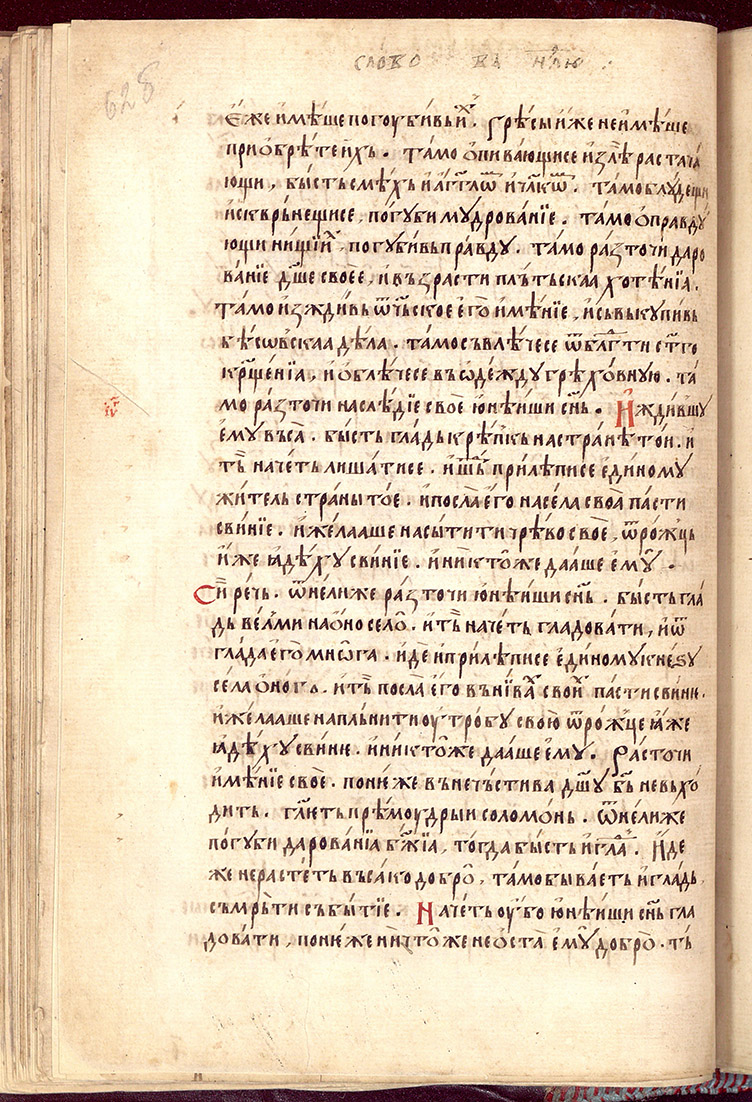 слово въ н҃лю
628
Є҆же и҆мѣ́ше погоуби́вьи҆х . грѣ́сы и҆́же не и҆мѣ́ше
прио҆брѣ́те и҆́хъ . та́мо ѻ҆пива́ющисе и҆злѣ́ растача́
ющи , бы́сть смѣ́хъ и҆ а҆́гг҃лѡ и҆ чл҃кѡ . та́мо блу́дещи
и҆ скврьне́щисе , погуби мудрова́нїе . та́мо ѻ҆правду
ющи ни́щїи , погуби́вь пра́вду . та́мо ра́зточи даро
ва́нїе дш҃е свое́е , и҆ възрасти пльтьскаа хоте́нїа .
та́мо и҆зжди́вь ѿч҃ьское е҆го̀ и҆мѣ́нїе , и҆ сьвькупи́вь
бѣсѡ́вскаа дѣ́ла . та́мо съвлѣ́чесе ѿ бл҃гⷣти ст҃го
крщ҃е́нїа , и҆ ѻ҆блѣ́чесе въ ѻ҆де́жду грѣхо́вную . та́
мо ра́зточи наслѣ́дїе своѐ ю҆нѣ́иши сн҃ь . И҆ждившу
е҆му̀ въса̀ . бы́сть гла́дь крѣ́пкь на странѣ̀ то́и . и҆
тъ̏ наче́ть лиша́тисе . и҆ шь́ прилѣ́писе е҆ди́ному
жи́тель страны̀ тоѐ . и҆ посла̀ е҆го̀ на се́ла своа̀ па́сти
свинїе . и҆ жела́аше насы́тити чрѣ́во своѐ , ѿ ро́жць
и҆́же ꙗ҆дѣ́ху свинїе . и҆ никто̑же дааше е҆му̑ .
Си̏ рѣчь . ѿне́лиже ра́зточи ю҆нѣ́иши сн҃ь . бы́сть гла́
дь ве́лми на ѻ҆но село̑ . и҆ тъ̏ наче́ть гладова́ти , и҆ ѿ
гла́да е҆го̀ мнѡ́га . и҆́де и҆ прилѣ́писе е҆ди́ному кне́ꙃу
се́ла ѻ҆ного . и҆ тъ̏ посла̀ е҆го въ ни́ва свои па́сти свинїе .
и҆ жела́аше напль́нити оу҆тро́бу свою̀ ѿ ро́жце ꙗ҆́же
ꙗ҆дѣ́ху свинїе . и҆ никто́же дааше е҆му̀ . Расточи
и҆мѣ́нїе своѐ . поне́же въ нечъ́стива дш҃у бъ҃ не въхо́
дить . гл҃еть прѣмоу́дрыи соломѡ́нь . ѿне́лиже
погуби дарова́нїа бж҃їа , тогда бы́сть и҆ гла . И҆де
же не расте́ть въсако добро̑ , та́мо быва́еть и҆ гла́дь
съмрьти съби́тїе . Наче́ть оу҆бо ю҆нѣ́иши сн҃ь гла
дова́ти , поне́же ничто́же не ѻ҆ста̀ е҆му̑ добро̀ . тъ